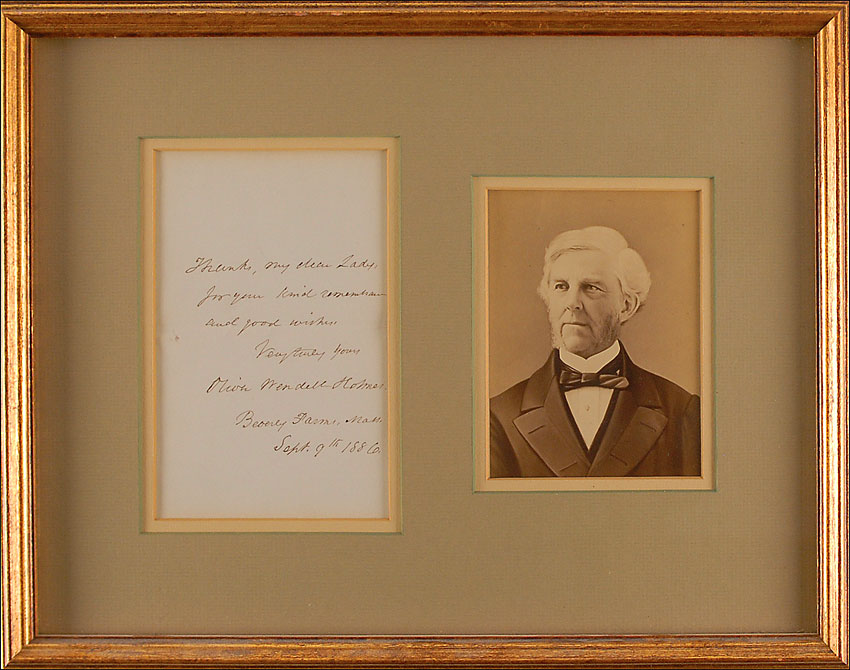 Thanks, my dear Lady,
for your kind remembran
and good wishes
Very truly yours
Oliver Wendell Holmes.
Beverly Farms, Mass.
Sept. 9th 1886.